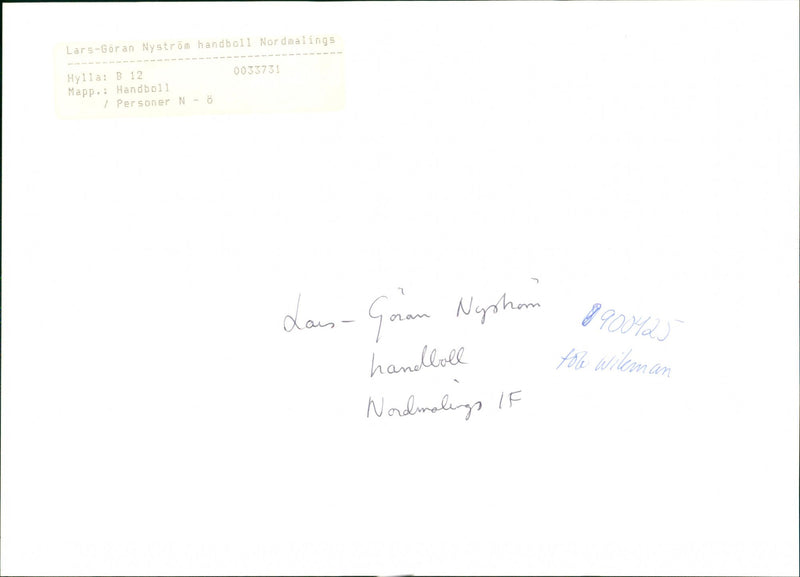 Lars-Göran Nyström handboll Nordmalings
------------------------------------
Hylla: B 12 0033731
Mapp.: Handboll
/ Personer N - ö
Lars-Göran Nyström
handboll
Nordmalings IF
900425
wikman